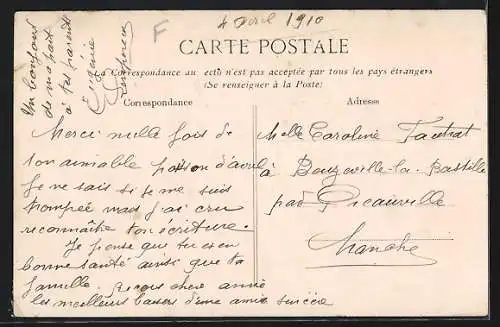 4 Avril 1910
F
CARTE POSTALE
La Correspondance au recto n'est pas acceptée par tous les pays étrangers
(Se renseigner à la Poste)
Correspondance
Adresse
Un bonjour
de ma part
à tes parents
Merci mille fois de
ton aimable poisson d'avril
Je ne sais si je me suis
trompée mais j'ai cru
reconnaître ton écriture.
Je pense que tu es en
bonne santé ainsi que ta
famille. Reçois chère amie
les meilleurs baisers d'une amie sincère
Melle Caroline
à Beuzeville-la-Bastille
par Picauville
Manche